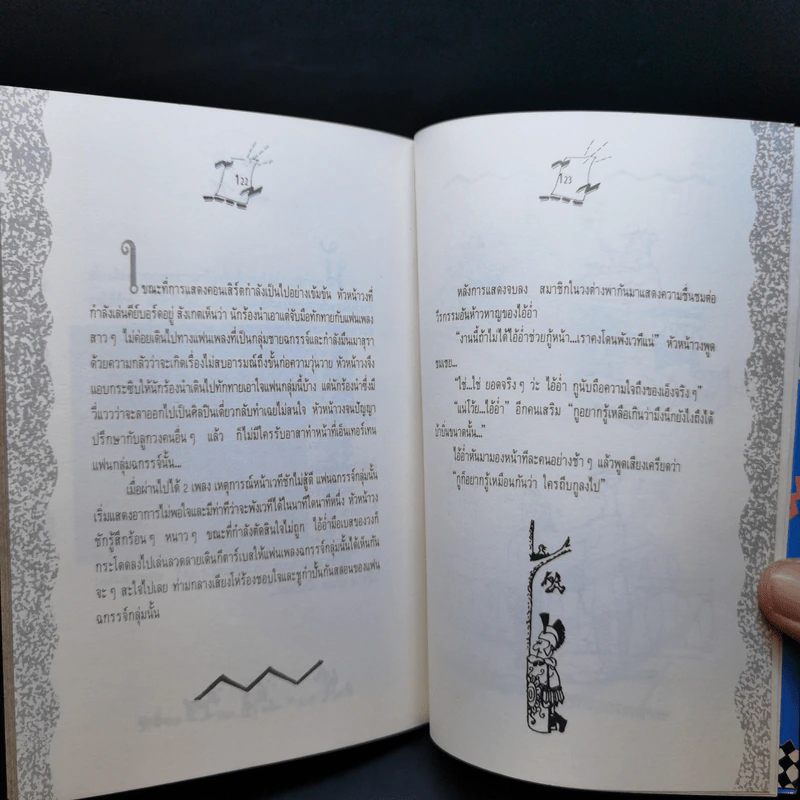 122
ในขณะที่การแสดงคอนเสิร์ตกำลังเป็นไปอย่างเข้มข้น หัวหน้าวงที่
กำลังเล่นคีย์บอร์ดอยู่ สังเกตเห็นว่า นักร้องนำเอาแต่จับมือทักทายกับแฟนเพลง
สาวๆ ไม่ค่อยเดินไปทางแฟนเพลงที่เป็นกลุ่มชายฉกรรจ์และกำลังมึนเมาสุรา
ด้วยความกลัวว่าจะเกิดเรื่องไม่สบอารมณ์ถึงขั้นก่อความวุ่นวาย หัวหน้าวงจึง
แอบกระซิบให้นักร้องนำเดินไปทักทายเอาใจแฟนกลุ่มนี้บ้าง แต่นักร้องนำซึ่งมี
วี่แววว่าจะลาออกไปเป็นศิลปินเดี่ยวกลับทำเฉยไม่สนใจ หัวหน้าวงจนปัญญา
ปรึกษากับลูกวงคนอื่นๆ แล้ว ก็ไม่มีใครรับอาสาทำหน้าที่เอ็นเทอร์เทน
แฟนกลุ่มฉกรรจ์นั้น...
เมื่อผ่านไปได้ 2 เพลง เหตุการณ์หน้าเวทีชักไม่สู้ดี แฟนฉกรรจ์กลุ่มนั้น
เริ่มแสดงอาการไม่พอใจและมีท่าทีว่าจะพังเวทีได้ในนาทีใดนาทีหนึ่ง หัวหน้าวง
ชักรู้สึกร้อนๆ หนาวๆ ขณะที่กำลังตัดสินใจไม่ถูก ไอ้อ่ำมือเบสของวงก็
กระโดดลงไปเล่นลวดลายเดินกีตาร์เบสให้แฟนเพลงฉกรรจ์กลุ่มนั้นได้เห็นกัน
จะๆ สะใจไปเลย ท่ามกลางเสียงโห่ร้องชอบใจและชูกำปั้นกันสลอนของแฟน
ฉกรรจ์กลุ่มนั้น
123
หลังการแสดงจบลง สมาชิกในวงต่างพากันมาแสดงความชื่นชมต่อ
วีรกรรมอันห้าวหาญของไอ้อ่ำ
"งานนี้ถ้าไม่ได้ไอ้อ่ำช่วยกู้หน้า...เราคงโดนพังเวทีแน่" หัวหน้าวงพูด
ชมเชย...
"ใช่...ใช่ ยอดจริงๆ ว่ะ ไอ้อ่ำ กูนับถือความใจถึงของเอ็งจริงๆ"
"แน่โว้ย...ไอ้อ่ำ" อีกคนเสริม "กูอยากรู้เหลือเกินว่ามึงนึกยังไงถึงได้
บ้าบิ่นขนาดนั้น..."
ไอ้อ่ำหันมามองหน้าทีละคนอย่างช้าๆ แล้วพูดเสียงเครียดว่า
"กูก็อยากรู้เหมือนกันว่า ใครถีบกูลงไป"